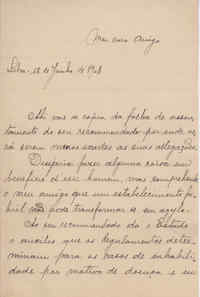 Meu caro Amigo
Lxa. 12 de Junho de 1908
Ahi vae a copia da folha de assen-
tamento do seu recommendado por onde ve-
rá serem menos exactas as suas allegações.
Desejaria fazer alguma coisa em
beneficio d'esse homem, mas comprehende
o meu amigo que um estabelecimento fa-
bril não pode transformar-se em asylo.
Ao seu recommendado da o Estado
o auxilio que os Regulamentos deter-
minam para os casos de inhabili-
dade por motivo de doença, e eu